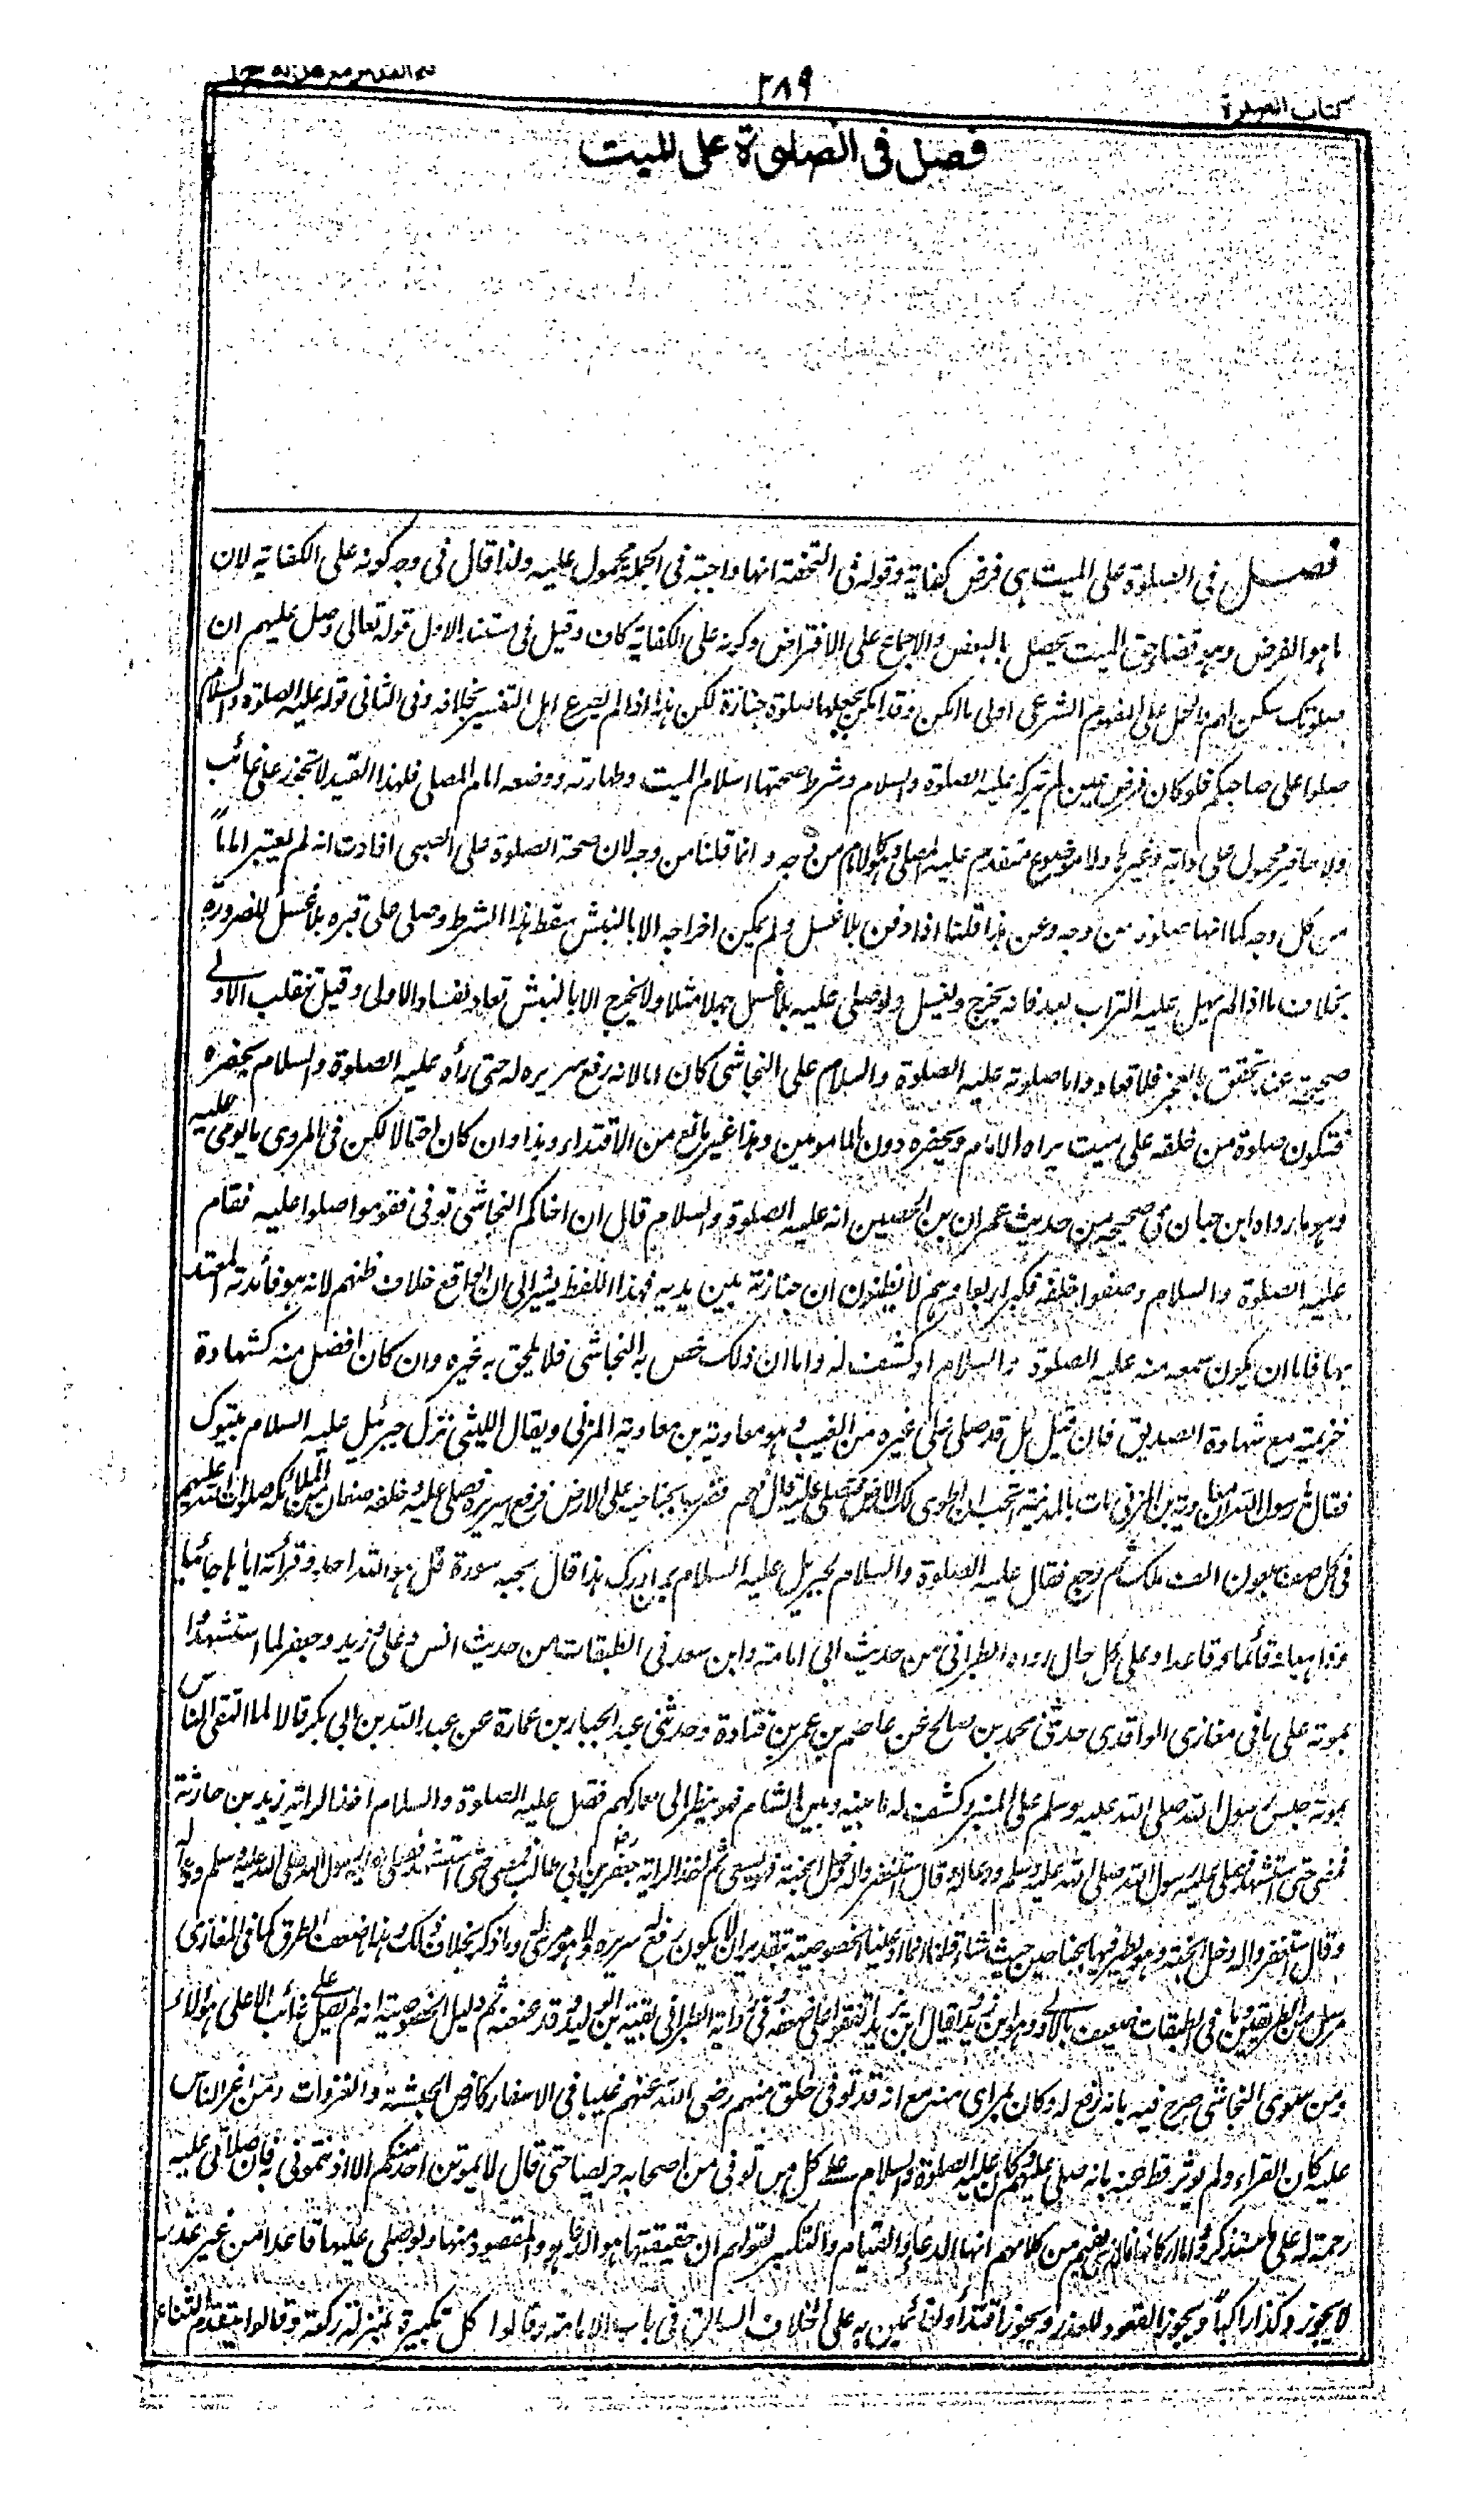 كتاب الصلوة
٢٨٩
فتح القدير مع
فصل فى الصلوة على الميت
فصل فى الصلوة على الميت هى فرض كفاية وقوله فى التحفة انها واجبة فى الجملة محمول عليه ولذا قال فى وجه كونه على الكفاية لان
ما هو الفرض وهو قضاء حق الميت يحصل بالبعض والاجماع على الافتراض وكونه على الكفاية كاف وقيل فى مستند الاول قوله تعالى وصل عليهم ان
صلوتك سكن لهم والحمل على المفهوم الشرعى اولى ما امكن وقد امكن بجعلها صلوة جنازة لكن هذا اذا لم يصرح اهل التفسير بخلافه وفى الثانى قوله عليه الصلوة والسلام
صلوا على صاحبكم فلو كان فرض عين لم يتركه عليه الصلوة والسلام وشرط صحتها اسلام الميت وطهارته ووضعه امام المصلى فلهذا القيد لا تجوز على غائب
ولا حاضر محمول على دابة وغيرها ولا موضوع متقدم عليه المصلى وهو كالامام من وجه وانما قلنا من وجه لان صحة الصلوة على الصبى افادت انه لم يعتبر اماما
من كل وجه كما انها صلوة من وجه وعن هذا قلنا اذا دفن بلا غسل ولم يمكن اخراجه الا بالنبش سقط هذا الشرط وصلى على قبره بلا غسل للضرورة
بخلاف ما اذا لم يهل عليه التراب بعد فانه يخرج ويغسل ولو صلى عليه بلا غسل جهلا مثلا ولا يخرج الا بالنبش تعاد لفساد الاولى وقيل تنقلب الاولى
صحيحة عند تحقق العجز فلا تعاد واما صلوته عليه الصلوة والسلام على النجاشى كان اما لانه رفع سريره له حتى رأه عليه الصلوة والسلام بحضرته
فتكون صلوة من خلفه على ميت يراه الامام وبحضرته دون المامومين وهذا غير مانع من الاقتداء وهذا وان كان احتمالا لكن فى المروى ما يومى عليه
وهو ما رواه ابن حبان فى صحيحه من حديث عمران بن الحصين انه عليه الصلوة والسلام قال ان اخاكم النجاشى توفى فقوموا صلوا عليه فقام
عليه الصلوة والسلام وصفوا خلفه فكبر اربعا وهم لا يظنون ان جنازته بين يديه فهذا اللفظ يشير الى ان الواقع خلاف ظنهم لانه هو فائدته المعتد
بها فاما ان يكون سمعه منه عليه الصلوة والسلام او كشف له واما ان ذلك خص به النجاشى فلا يلحق به غيره وان كان افضل منه كشهادة
خزيمة مع شهادة الصديق فان قيل بل قد صلى على غيره من الغيب وهو معاوية بن معاوية المزنى ويقال الليثى نزل جبرئيل عليه السلام بتبوك
فقال يا رسول الله ان معاوية بن المزنى مات بالمدينة اتحب ان اطوى لك الارض فتصلى عليه قال نعم فضرب بجناحيه على الارض فرفع سريره فصلى عليه وخلفه صفان من الملائكة صلوات الله عليهم
فى كل صف سبعون الف ملك ثم رجع فقال عليه الصلوة والسلام لجبريل عليه السلام بم ادرك هذا قال بحبه سورة قل هو الله احد وقرأته اياها جائيا
وذاهبا وقائما وقاعدا وعلى كل حال رواه الطبرانى من حديث ابى امامة وابن سعد فى الطبقات من حديث انس وعلى زيد وجعفر لما استشهدا
بموتة على ما فى مغازى الواقدى حدثنى محمد بن صالح عن عاصم بن عمر بن قتادة وحدثنى عبد الجبار بن عمارة عن عبد الله بن ابى بكر قالا لما التقى الناس
بموتة جلس رسول الله صلى الله عليه وسلم على المنبر وكشف له ما بينه وبين الشام فهو ينظر الى معاركهم فقال عليه الصلوة والسلام اخذ الراية زيد بن حارثة
فمضى حتى استشهد فصلى عليه رسول الله صلى الله عليه وسلم ودعا له وقال استغفروا له دخل الجنة وهو يسعى ثم اخذ الراية جعفر بن ابى طالب رض فمضى حتى استشهد فصلى عليه رسول الله صلى الله عليه وسلم ودعا له
وقال استغفروا له دخل الجنة وهو يطير فيها بجناحين حيث شاء قلنا انما ادعينا الخصوصية بتقدير ان لا يكون رفع له سريره ولا هو مرئى له وما ذكر بخلاف ذلك وهذا مع ضعف الطرق كما فى المغازى
مرسل من الطريقين وما فى الطبقات ضعيف بالعلاء وهو ابن زيد ويقال ابن يزيد اتفقوا على ضعفه وفى رواية الطبرانى بقية بن الوليد وقد ضعفه ثم دليل الخصوصية انه لم يصل على غائب الا على هؤلاء
ومن سوى النجاشى صرح فيه بانه رفع له وكان بمرأى منه مع انه قد توفى خلق منهم رضى الله عنهم غيبا فى الاسفار كارض الحبشة والغزوات ومن اعز الناس
عليه كان القراء ولم يؤثر قط عنه بانه صلى عليهم وكان عليه الصلوة والسلام على كل من توفى من اصحابه حريصا حتى قال لا يموتن احد منكم الا اذنتمونى به فان صلاتى عليه
رحمة له على ما سنذكر واما اركانها فالذى يفهم من كلامهم انها الدعاء والقيام والتكبير لقولهم ان حقيقتها هو الدعاء وهو المقصود منها ولو صلى عليها قاعدا من غير عذر
لا يجوز وكذا راكبا ويجوز القعود للعذر ويجوز اقتداء القائمين به على الخلاف السابق فى باب الامامة وقالوا كل تكبيرة بمنزلة ركعة وقالوا يقدم الثناء